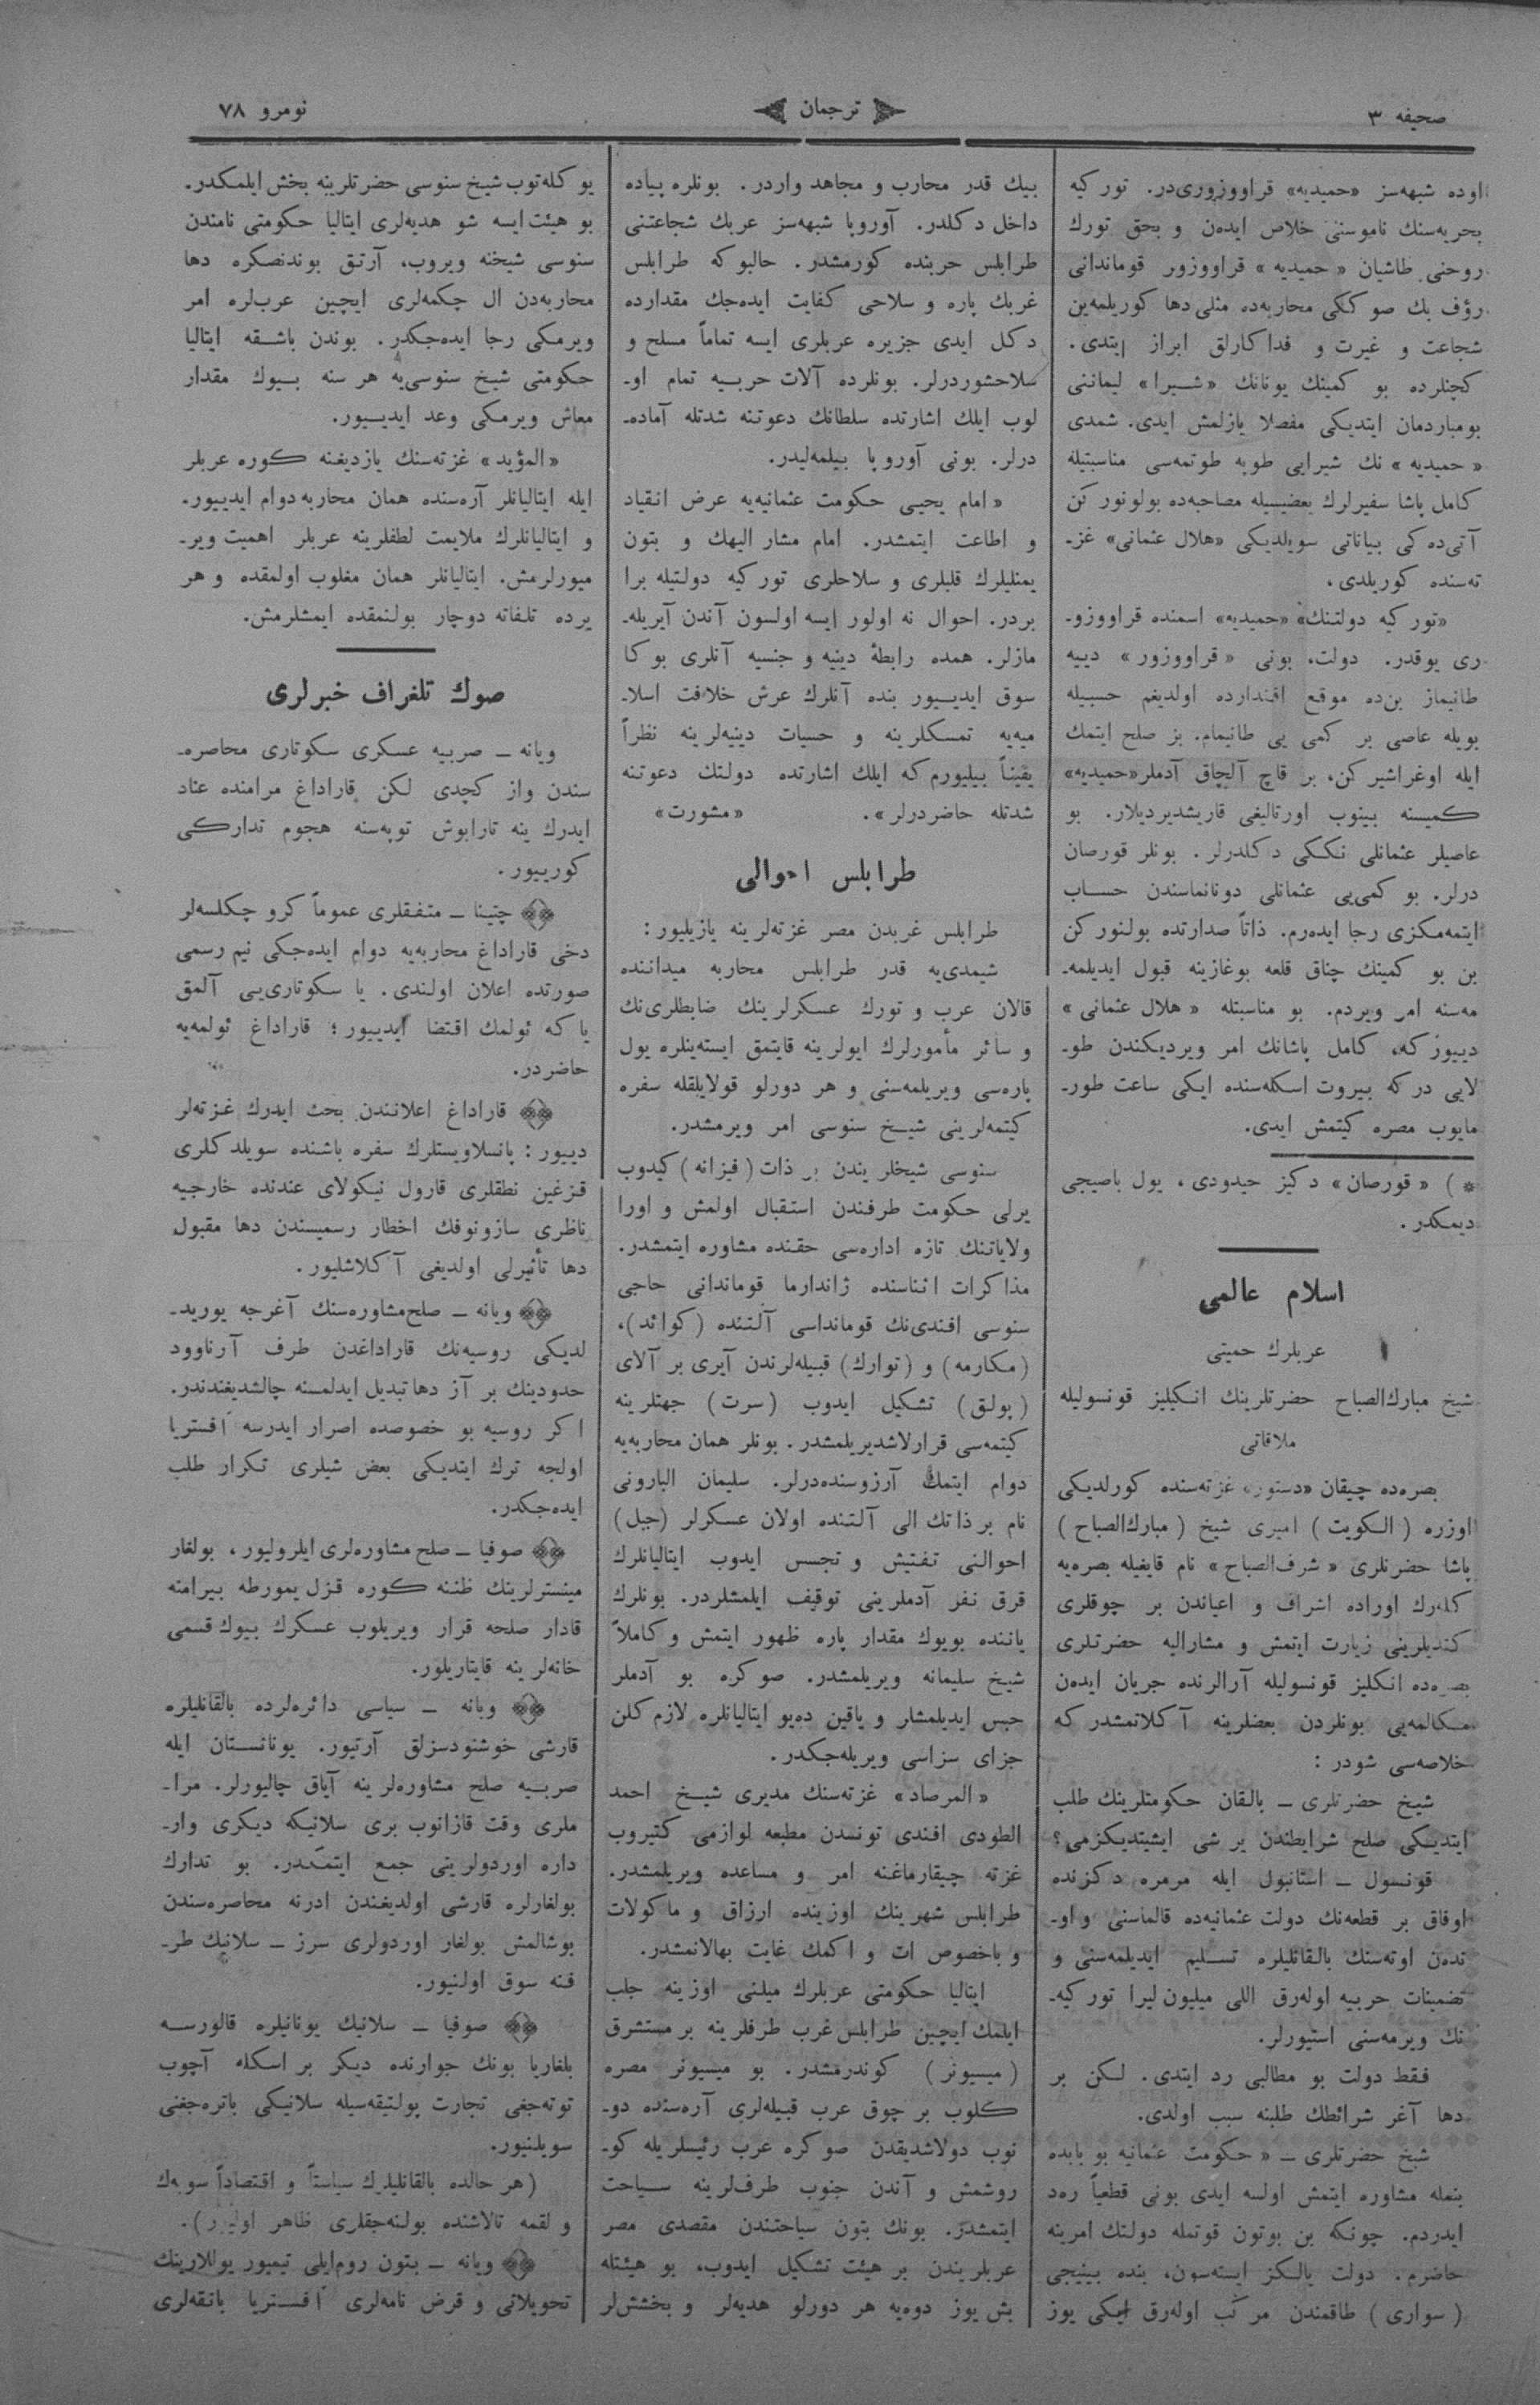 صحیفه ٣
ترجمان
نومرو ٧٨
اوده شبهه‌سز «حمیدیه» قراووزوری‌در. تورکیه
بحریه‌سنك ناموسنی خلاص ایدەن و بحق تورك
روحنی طاشیان «حمیدیه» قراووزور قوماندانی
رؤف بك صوكکی محاربه‌ده مثلی دها کوریلمه‌ین
شجاعت و غیرت و فداکارلق ابراز ایتدی.
کچنلرده بو کمینك یونانك «شیرا» لیماننی
بومباردمان ایتدیکی مفصلا یازلمش ایدی. شمدی
«حمیدیه» نك شیرایی طوپه طوتمه‌سی مناسبتیله
کامل پاشا سفیرلرك بعضیسیله مصاحبه‌ده بولونور کن
آتی‌ده کی بیاناتی سویلدیکی «هلال عثمانی» غز-
ته‌سنده کوریلدی،
«تورکیه دولتنك» «حمیدیه» اسمنده قراووزو-
ری یوقدر. دولت، بونی «قراووزور» دییه
طانیماز بن‌ده موقع اقتدارده اولدیغم حسبیله
بویله عاصی بر کمی یی طانیمام. بز صلح ایتمك
ایله اوغراشیر کن، بر قاچ آلچاق آدملر «حمیدیه»
کمیسنه بینوب اورتالیغی قاریشدیردیلار. بو
عاصیلر عثمانلی نککی دکلدرلر. بونلر قورصان
درلر. بو کمی‌یی عثمانلی دونانماسندن حساب
ایتمه‌مکزی رجا ایده‌رم. ذاتاً صدارتده بولنور کن
بن بو کمینك چناق قلعه بوغازینه قبول ایدیلمه-
مه‌سنه امر ویردم. بو مناسبتله «هلال عثمانی»
دییوز که، کامل پاشانك امر ویردیکندن طو-
لایی در که بیروت اسکله‌سنده ایکی ساعت طور-
مایوب مصره کیتمش ایدی.
*) «قورصان» دکیز حیدودی، یول باصیجی
دیمکدر.
اسلام عالمی
عربلرك حمیتی
شیخ مبارك‌الصباح حضرتلرینك انکلیز قونسولیله
ملاقاتی
بصره‌ده چیقان «دستور» غزته‌سنده کورلدیکی
اوزره (الکویت) امیری شیخ (مبارك‌الصباح)
پاشا حضرتلری «شرف‌الصباح» نام قایغیله بصره‌یه
کلەرك اوراده اشراف و اعیاندن بر چوقلری
کندیلرینی زیارت ایتمش و مشارالیه حضرتلری
بصره‌ده انکلیز قونسولیله آرالرنده جریان ایدەن
مکالمه‌یی بونلردن بعضلرینه آکلاتمشدر که
خلاصه‌سی شودر:
شیخ حضرتلری — بالقان حکومتلرینك طلب
ایتدیکی صلح شرایطندن بر شی ایشیتدیکزمی؟
قونسول — استانبول ایله مرمره دکزنده
اوفاق بر قطعه‌نك دولت عثمانیه‌ده قالماسنی و او-
ندەن اوته‌سنك بالقانلیلره تسلیم ایدیلمه‌سنی و
تضمینات حربیه اولەرق اللی میلیون لیرا تورکیه-
نك ویرمه‌سنی استیورلر.
فقط دولت بو مطالبی رد ایتدی. لکن بر
دها آغر شرائطك طلبنه سبب اولدی.
شیخ حضرتلری — «حکومت عثمانیه بو بابده
بنمله مشاوره ایتمش اولسه ایدی بونی قطعیاً رد
ایدردم. چونکه بن بوتون قوتمله دولتك امرینه
حاضرم. دولت یالکز ایسته‌سون، بنده بینیجی
(سواری) طاقمندن مرکب اولەرق ایکی یوز
بیك قدر محارب و مجاهد واردر. بونلره پیاده
داخل دکلدر. آوروپا شبهه‌سز عربك شجاعتنی
طرابلس حربنده کورمشدر. حالبوکه طرابلس
غربك پاره و سلاحی کفایت ایده‌جك مقدارده
دکل ایدی جزیره عربلری ایسه تماماً مسلح و
سلاحشوردرلر. بونلرده آلات حربیه تمام او-
لوب ایلك اشارتده سلطانك دعوتنه شدتله آماده-
درلر. بونی آوروپا بیلمه‌لیدر.
«امام یحیی حکومت عثمانیه‌یه عرض انقیاد
و اطاعت ایتمشدر. امام مشار الیهك و بتون
یمنلیلرك قلبلری و سلاحلری تورکیه دولتیله برا
بردر. احوال نه اولور ایسه اولسون آندن آیریله-
مازلر. همده رابطهٔ دینیه و جنسیه آنلری بوکا
سوق ایدییور بنده آنلرك عرش خلافت اسلا-
میه‌یه تمسکلرینه و حسیات دینیه‌لرینه نظراً
یقیناً بیلیورم که ایلك اشارتده دولتك دعوتنه
شدتله حاضردرلر». «مشورت»
طرابلس احوالی
طرابلس غربدن مصر غزته‌لرینه یازیلیور:
شیمدی‌یه قدر طرابلس محاربه میداننده
قالان عرب و تورك عسکرلرینك ضابطلری‌نك
و سائر مأمورلرك ایولرینه قایتمق ایسته‌ینلره یول
پاره‌سی ویریلمه‌سنی و هر دورلو قولایلقله سفره
کیتمه‌لرینی شیخ سنوسی امر ویرمشدر.
سنوسی شیخلریندن بر ذات (فیزانه) کیدوب
یرلی حکومت طرفندن استقبال اولمش و اورا
ولایاتنك تازه اداره‌سی حقنده مشاوره ایتمشدر.
مذاکرات اثناسنده ژاندارما قوماندانی حاجی
سنوسی افندی‌نك قومانداسی آلتنده (کوائد)،
(مکارمه) و (توارك) قبیله‌لرندن آیری بر آلای
(پولق) تشکیل ایدوب (سرت) جهتلرینه
کیتمه‌سی قرارلاشدیریلمشدر. بونلر همان محاربه‌یه
دوام ایتمك آرزوسنده‌درلر. سلیمان البارونی
نام بر ذاتك الی آلتنده اولان عسکرلر (جبل)
احوالنی تفتیش و تجسس ایدوب ایتالیانلرك
قرق نفر آدملرینی توقیف ایلمشلردر. بونلرك
یاننده بویوك مقدار پاره ظهور ایتمش و کاملاً
شیخ سلیمانه ویریلمشدر. صوکره بو آدملر
حبس ایدیلمشلر و یاقین ده‌یو ایتالیانلره لازم کلن
جزای سزاسی ویریله‌جکدر.
«المرصاد» غزته‌سنك مدیری شیخ احمد
الطودی افندی تونسدن مطبعه لوازمی کتیروب
غزته چیقارماغنه امر و مساعده ویریلمشدر.
طرابلس شهرینك اوزینده ارزاق و ماکولات
و باخصوص ات و اکمك غایت بهالانمشدر.
ایتالیا حکومتی عربلرك میلنی اوزینه جلب
ایلمك ایچین طرابلس غرب طرفلرینه بر مستشرق
(میسیونر) کوندرمشدر. بو میسیونر مصره
کلوب بر چوق عرب قبیله‌لری آره‌سنده دو-
نوب دولاشدیقدن صوکره عرب رئیسلریله کو-
روشمش و آندن جنوب طرف‌لرینه سیاحت
ایتمشدر. بونك بتون سیاحتندن مقصدی مصر
عربلریندن بر هیئت تشکیل ایدوب، بو هیئتله
بش یوز دوه‌یه هر دورلو هدیه‌لر و بخششلر
یوکله‌توب شیخ سنوسی حضرتلرینه بخش ایلمکدر.
بو هیئت ایسه شو هدیه‌لری ایتالیا حکومتی نامندن
سنوسی شیخنه ویروب، آرتق بوندنصکره دها
محاربه‌دن ال چکمه‌لری ایچین عرب‌لره امر
ویرمکی رجا ایده‌جکدر. بوندن باشقه ایتالیا
حکومتی شیخ سنوسی‌یه هر سنه بیوك مقدار
معاش ویرمکی وعد ایدییور.
«المؤید» غزته‌سنك یازدیغنه کوره عربلر
ایله ایتالیانلر آره‌سنده همان محاربه دوام ایدییور.
و ایتالیانلرك ملایمت لطفلرینه عربلر اهمیت ویر-
میورلرمش. ایتالیانلر همان مغلوب اولمقده و هر
یرده تلفاته دوچار بولنمقده ایمشلرمش.
صوك تلغراف خبرلری
ویانه — صربیه عسکری سکوتاری محاصره-
سندن واز کچدی لکن قاراداغ مرامنده عناد
ایدرك ینه تارابوش توپه‌سنه هجوم تدارکی
کورییور.
چتینا — متفقلری عموماً کرو چکلسه‌لر
دخی قاراداغ محاربه‌یه دوام ایده‌جکی نیم رسمی
صورتده اعلان اولندی. یا سکوتاری‌یی آلمق
یا که ئولمك اقتضا ایدییور؛ قاراداغ ئولمه‌یه
حاضردر.
قاراداغ اعلانندن بحث ایدرك غزته‌لر
دییور: پانسلاویستلرك سفره باشنده سویلدکلری
قزغین نطقلری قارول نیکولای عندنده خارجیه
ناظری سازونوفك اخطار رسمیسندن دها مقبول
دها تأثیرلی اولدیغی آکلاشلیور.
ویانه — صلح مشاوره‌سنك آغرجه یورید-
لدیکی روسیه‌نك قاراداغدن طرف آرناوود
حدودینك بر آز دها تبدیل ایدلمسنه چالشدیغندندر.
اکر روسیه بو خصوصده اصرار ایدرسه افستریا
اولجه ترك ایتدیکی بعض شیلری تکرار طلب
ایده‌جکدر.
صوفیا — صلح مشاوره‌لری ایلرولیور، بولغار
مینسترلرینك ظننه کوره قزل یمورطه بیرامنه
قادار صلحه قرار ویریلوب عسکرك بیوك قسمی
خانه‌لرینه قایتاریلور.
ویانه — سیاسی دائره‌لرده بالقانلیلره
قارشی خوشنودسزلق آرتیور. یونانستان ایله
صربیه صلح مشاوره‌لرینه آیاق چالیورلر. مرا-
ملری وقت قازانوب بری سلانیکه دیکری وار-
داره اوردولرینی جمع ایتمکدر. بو تدارك
بولغارلره قارشی اولدیغندن ادرنه محاصره‌سندن
بوشالمش بولغار اوردولری سرز — سلانیك طر-
فنه سوق اولنیور.
صوفیا — سلانیك یونانیلره قالورسه
بلغاریا بونك جوارنده دیکر بر اسکله آچوب
توته‌جغی تجارت پولتیقه‌سیله سلانیکی باتره‌جغنی
سویلنیور.
(هر حالده بالقانلیلرك سیاستاً و اقتصاداً سویه‌ك
و لقمه تالاشنده بولنه‌جقلری ظاهر اولیور).
ویانه — بتون روم‌ایلی تیمیور یوللارینك
تحویلاتی و قرض نامه‌لری افستریا بانقه‌لری